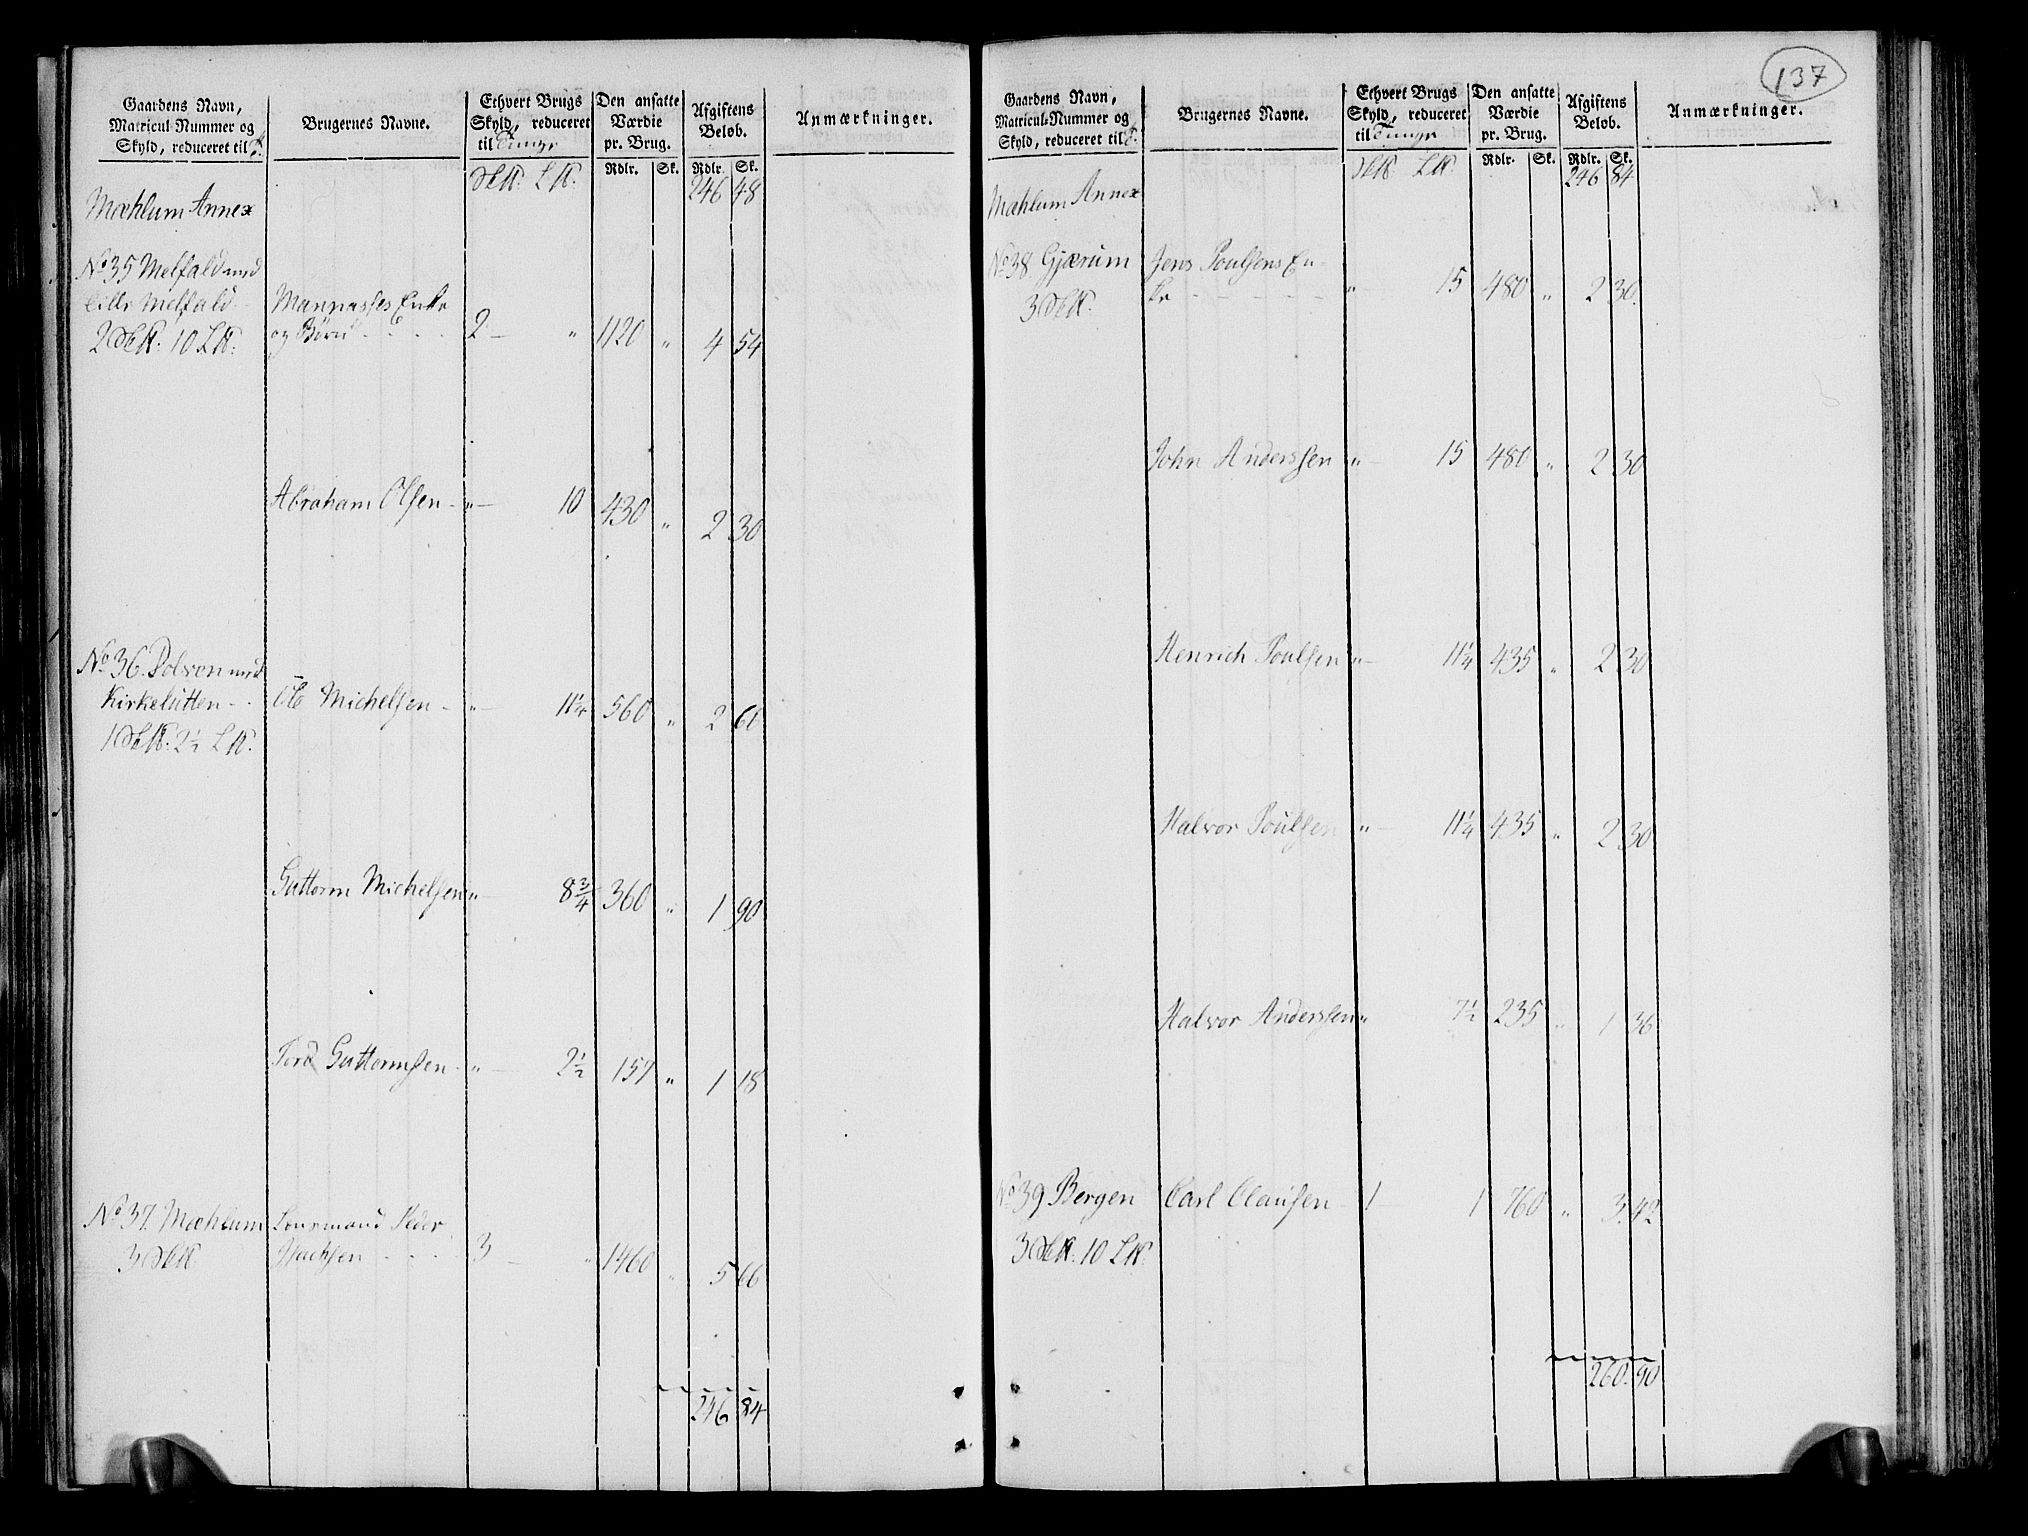 137
Gaardens Navn,
Matricul-Nummer og
Skyld, reduceret til T.
Brugernes Navne.
Ethvert Brugs
Skyld, reduceret
til Tunge
Den ansatte
Værdie
pr. Brug.
Afgiftens
Beløb.
Anmærkninger.
Rdlr. Sk. Rdlr. Sk.
Mæhlum Annex 246 48
No 35 Melfald med
Lille Melfald
2 10
Mannasses Enke
og Børn 2 — " 1120 " 4 54
Abraham Olsen " — 10 430 " 2 30
No 36 Dolven med
Kirkelutten
1 2½
Ole Michelsen " — 11¼ 560 " 2 60
Guttorm Michelsen " — 8¾ 360 " 1 90
Tord Guttormsen " — 2½ 157 " 1 18
No 37 Mæhlum
3
Lensmand Peder
Isachsen 3 — " 1460 " 5 66
246 84
Gaardens Navn,
Matricul-Nummer og
Skyld, reduceret til T.
Brugernes Navne.
Ethvert Brugs
Skyld, reduceret
til Tunge
Den ansatte
Værdie
pr. Brug.
Afgiftens
Beløb.
Anmærkninger.
Rdlr. Sk. Rdlr. Sk.
Mæhlum Annex 246 84
No 38 Gjærum
3
Jens Poulsens En-
ke " — 15 480 " 2 30
John Anderssen " — 15 480 " 2 30
Henrich Poulsen " — 11¼ 435 " 2 30
Halvor Poulsen " — 11¼ 435 " 2 30
Halvor Anderssen " 7½ 235 " 1 36
No 39 Bergen
3 10
Carl Clausen 1 — 1 760 " 3 42
260 90